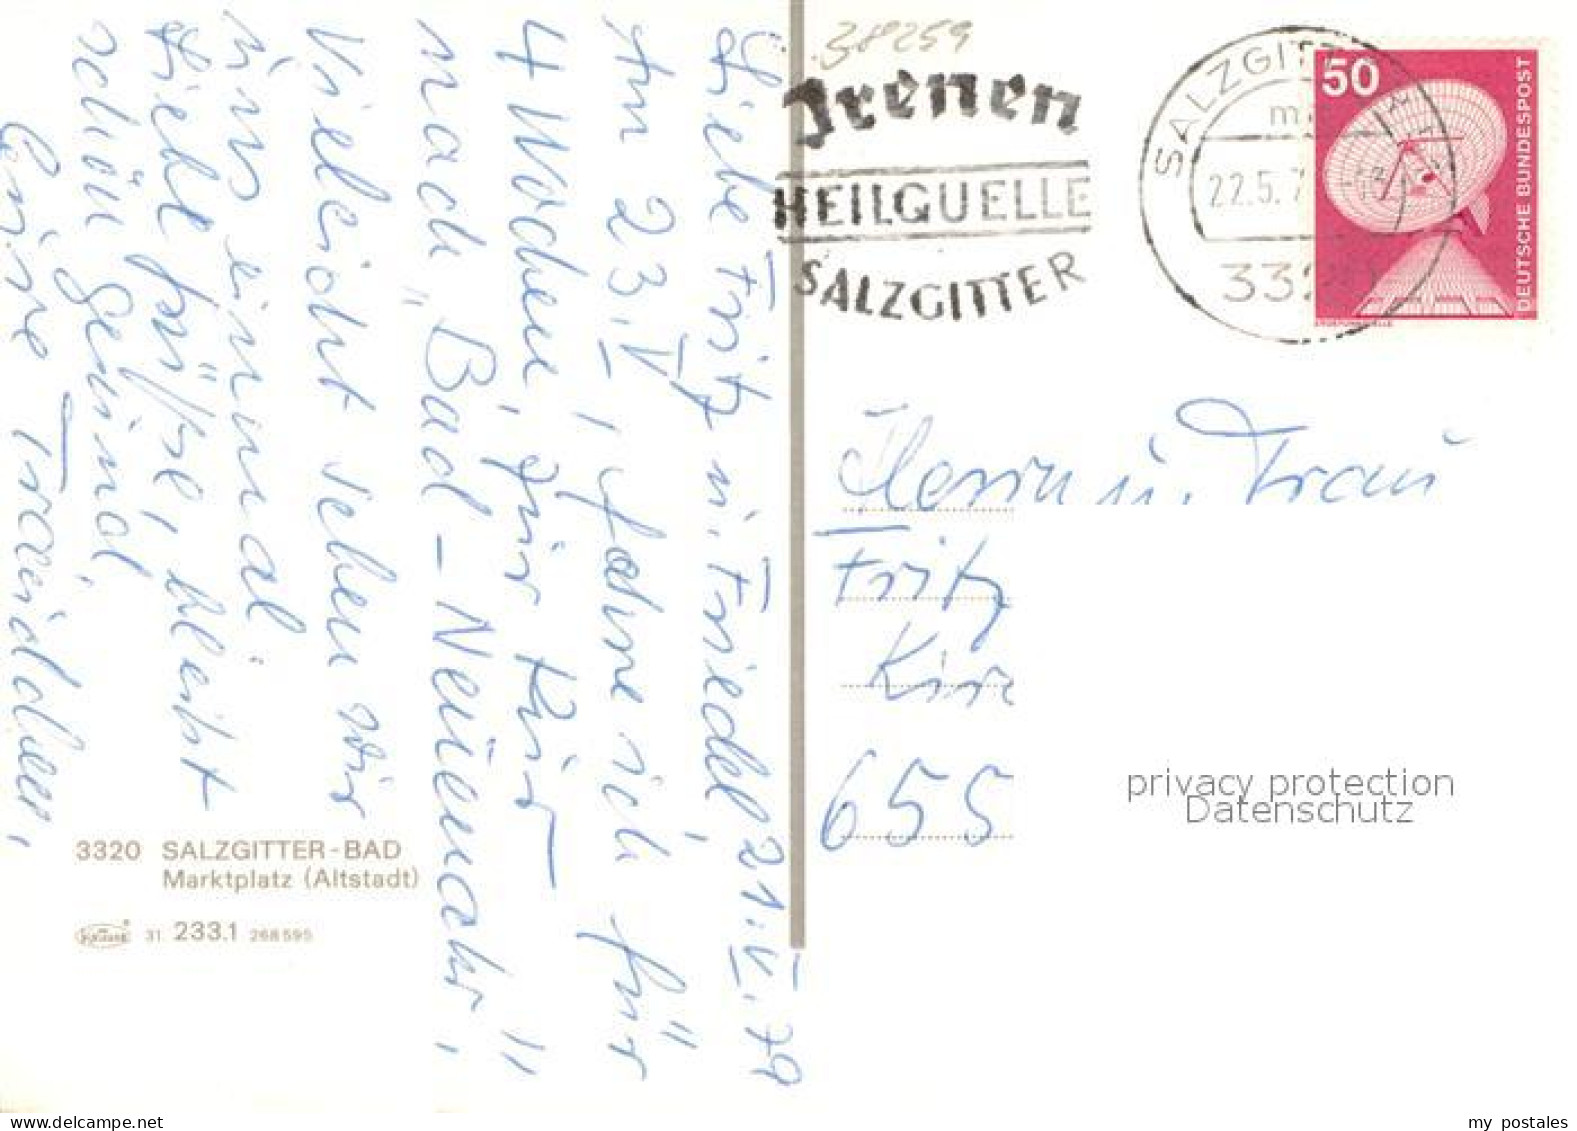 Liebe Fritz u. Friedel, 21.V.79
Am 23.V, fahre ich für
4 Wochen, zur Kur
nach "Bad-Neuenahr",
Vielleicht sehen wir
uns einmal
Liebe Grüsse, bleibt
schön gesund
Eure Traudchen,
3320 SALZGITTER-BAD
Marktplatz (Altstadt)
31 233.1 268595
38259
Irenen
HEILQUELLE
SALZGITTER
SALZGITT
22.5.7
332
50
DEUTSCHE BUNDESPOST
ERDEFUNKSTELLE
Herrn u. Frau
Fritz
Kir
655
privacy protection
Datenschutz
www.delcampe.net
my_postales